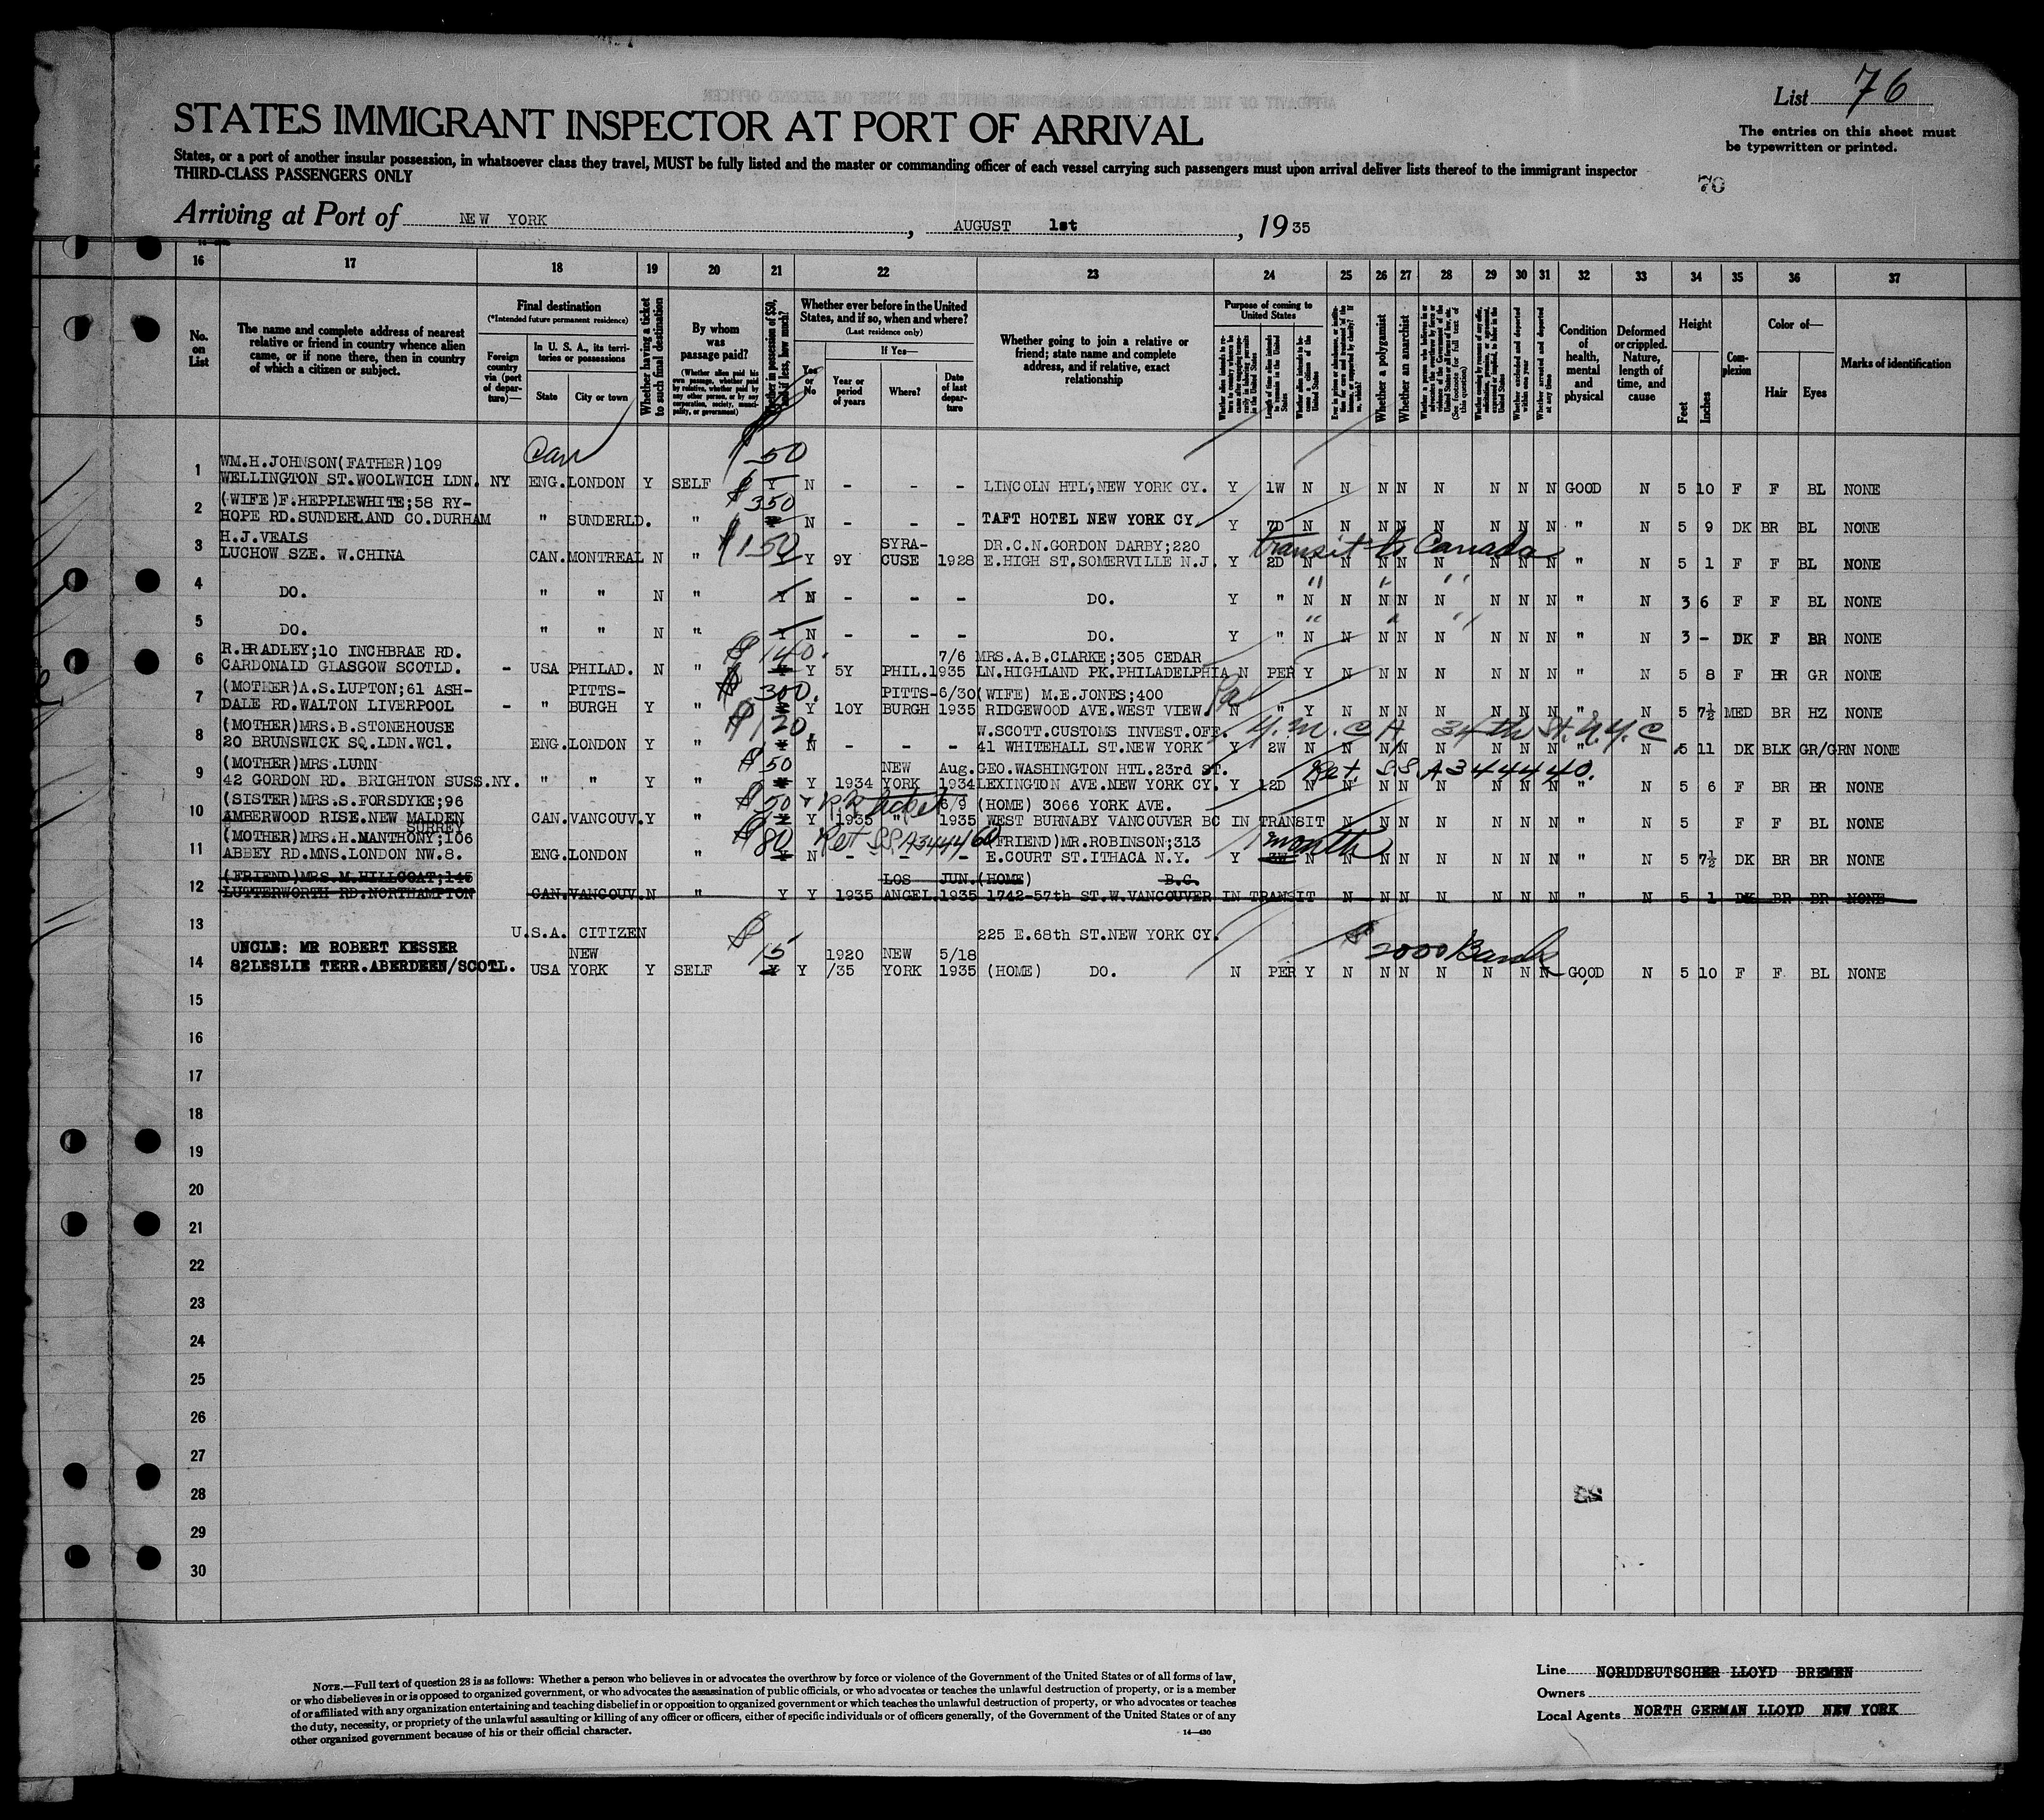 List 76
The entries on this sheet must
be typewritten or printed.
STATES IMMIGRANT INSPECTOR AT PORT OF ARRIVAL
States, or a port of another insular possession, in whatsoever class they travel, MUST be fully listed and the master or commanding officer of each vessel carrying such passengers must upon arrival deliver lists thereof to the immigrant inspector
THIRD-CLASS PASSENGERS ONLY
70
Arriving at Port of NEW YORK, AUGUST 1st, 1935
16 17 18 19 20 21 22 23 24 25 26 27 28 29 30 31 32 33 34 35 36 37
No. on List
The name and complete address of nearest
relative or friend in country whence alien
came, or if none there, then in country
of which a citizen or subject.
Final destination
(*Intended future permanent residence)
Foreign country via (port of departure)—
In U. S. A., its territories or possessions
State City or town
Whether having a ticket to such final destination
By whom was passage paid?
(Whether alien paid his own passage, whether paid by relative, whether paid by any other person, or by any corporation, society, municipality, or government)
Whether in possession of $50, and if less, how much?
Whether ever before in the United
States, and if so, when and where?
(Last residence only)
Yes or No
If Yes—
Year or period of years
Where?
Date of last departure
Whether going to join a relative or
friend; state name and complete
address, and if relative, exact
relationship
Purpose of coming to
United States
Length of time alien intends to remain in the United States
Whether alien intends to become a citizen of the United States
Whether a polygamist
Whether an anarchist
Whether excluded and deported within one year
Whether arrested and deported at any time
Condition of health, mental and physical
Deformed or crippled. Nature, length of time, and cause
Height
Feet Inches
Complexion
Color of—
Hair Eyes
Marks of identification
Can
$50
1 WM.H.JOHNSON(FATHER)109
WELLINGTON ST.WOOLWICH LDN. NY ENG.LONDON Y SELF Y N - - - LINCOLN HTL,NEW YORK CY. Y 1W N N N N N N N N GOOD N 5 10 F F BL NONE
$350
2 (WIFE)F.HEPPLEWHITE;58 RY-
HOPE RD.SUNDERLAND CO.DURHAM " SUNDERLD. " N - - - TAFT HOTEL NEW YORK CY. Y 7D N N N N N N N N " N 5 9 DK BR BL NONE
$150 transit to Canada
3 H.J.VEALS SYRA- DR.C.N.GORDON DARBY;220
LUCHOW SZE. W.CHINA CAN.MONTREAL N " Y Y 9Y CUSE 1928 E.HIGH ST.SOMERVILLE N.J. Y 2D N N N N N N N N " N 5 1 F F BL NONE
" " "
4 DO. " " N " Y N - - - DO. Y " N N N N N N N N " N 3 6 F F BL NONE
" " "
5 DO. " " N " Y N - - - DO. Y " N N N N N N N N " N 3 - DK F BR NONE
$140.
6 R.BRADLEY;10 INCHBRAE RD. 7/6 MRS.A.B.CLARKE;305 CEDAR
CARDONALD GLASGOW SCOTLD. - USA PHILAD. N " Y 5Y PHIL.1935 LN.HIGHLAND PK.PHILADELPHIA N PER Y N N N N N N N " N 5 8 F BR GR NONE
$300.
7 (MOTHER)A.S.LUPTON;61 ASH- PITTS- PITTS- 6/30 (WIFE) M.E.JONES;400
DALE RD.WALTON LIVERPOOL - " BURGH Y " Y 10Y BURGH 1935 RIDGEWOOD AVE.WEST VIEW. Pa N " Y N N N N N N N " N 5 7½ MED BR HZ NONE
$120. Y.M.C.A 34th St. N.Y.C
8 (MOTHER)MRS.B.STONEHOUSE W.SCOTT.CUSTOMS INVEST.OFF.
20 BRUNSWICK SQ.LDN.WC1. ENG.LONDON Y " N - - - 41 WHITEHALL ST.NEW YORK Y 2W N N N N N N N N " N 5 11 DK BLK GR/GRN NONE
$50 Ret. S.S. A344440.
9 (MOTHER)MRS.LUNN NEW Aug. GEO.WASHINGTON HTL.23rd ST.
42 GORDON RD. BRIGHTON SUSS.NY. " " Y Y 1934 YORK 1934 LEXINGTON AVE.NEW YORK CY. Y 12D N N N N N N N N " N 5 6 F BR BR NONE
$50 + R.R ticket
10 (SISTER)MRS.S.FORSDYKE;96 6/9 (HOME) 3066 YORK AVE.
AMBERWOOD RISE.NEW MALDEN CAN.VANCOUV.Y " Y 1935 " 1935 WEST BURNABY VANCOUVER BC IN TRANSIT N N N N N N N " N 5 F F BL NONE
SURREY
$80 Ret S.S. A344460 1 month
11 (MOTHER)MRS.H.MANTHONY;106 (FRIEND)MR.ROBINSON;313
ABBEY RD.MNS.LONDON NW.8. ENG.LONDON " Y N - - - E.COURT ST.ITHACA N.Y. Y 3W N N N N N N N N " N 5 7½ DK BR BR NONE
12 (FRIEND)MRS.M.HILLCOAT;145 LOS JUN. (HOME) B.C.
LUTTERWORTH RD.NORTHAMPTON CAN.VANCOUV.N " Y Y 1935 ANGEL.1935 1742-57th ST.W.VANCOUVER IN TRANSIT N N N N N N N " N 5 1 DK BR BR NONE
13 U.S.A. CITIZEN 225 E.68th ST.NEW YORK CY.
$15 $2000 Bank
14 UNCLE: MR ROBERT KESSER NEW 1920 NEW 5/18
82LESLIE TERR.ABERDEEN/SCOTL. USA YORK Y SELF Y Y /35 YORK 1935 (HOME) DO. N PER Y N N N N N N N GOOD N 5 10 F F BL NONE
15
16
17
18
19
20
21
22
23
24
25
26
27
28
29
30
NOTE.—Full text of question 28 is as follows: Whether a person who believes in or advocates the overthrow by force or violence of the Government of the United States or of all forms of law,
or who disbelieves in or is opposed to organized government, or who advocates the assassination of public officials, or who advocates or teaches the unlawful destruction of property, or is a member
of or affiliated with any organization entertaining and teaching disbelief in or opposition to organized government or which teaches the unlawful destruction of property, or who advocates or teaches
the duty, necessity, or propriety of the unlawful assaulting or killing of any officer or officers, either of specific individuals or of officers generally, of the Government of the United States or of any
other organized government because of his or their official character.
14—430
Line NORDDEUTSCHER LLOYD BREMEN
Owners
Local Agents NORTH GERMAN LLOYD NEW YORK